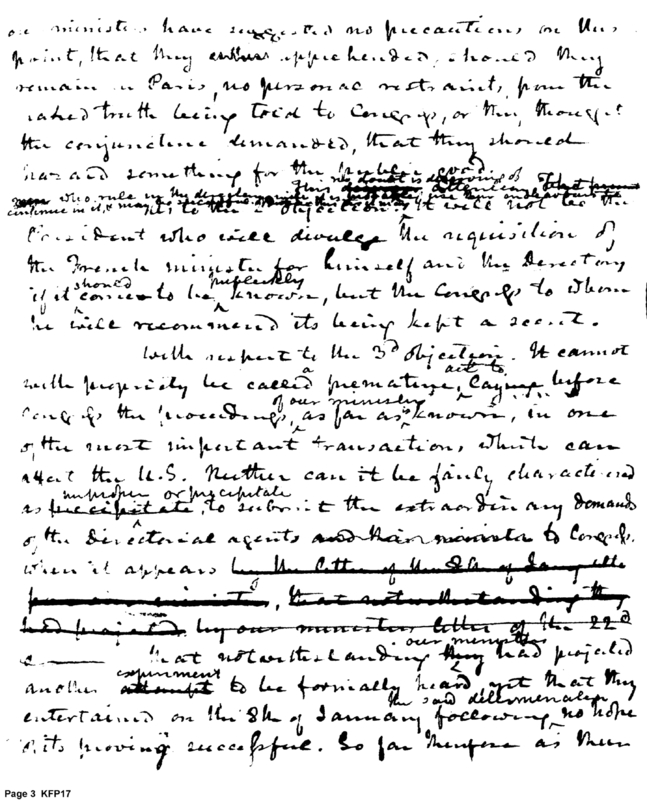 our ministers have suggested no precautions on this
point, that they either apprehended, should they
remain in Paris, no personal restraints, from the
naked truth being told to Congress, or they thought
the conjuncture demanded, that they should
hazard something for the public good.
This no doubt is deserving of attention
who rule in the
continue in it, &
As to the 2 objection, it will not be the
President who will divulge the requisition of
the French minister for himself and the Directory
should publickly
if it comes to be known, but the Congress to whom
he will recommend its being kept a secret.
With respect to the 3d objection. It cannot
a act to
with propriety be called premature, laying before
of our ministers
Congress the proceedings, as far as known, in one
of the most important transactions, which can
affect the U.S. Neither can it be fairly characterised
improper or precipitate
as precipitate, to submit the extraordinary demands
of the Directorial agents and their minister to Congress.
when it appears by the letter of the 8th of Jany
that notwithstanding they
had projected by our ministers letter of the 22d
our ministers
that notwithstanding they had projected
experiment
another attempt to be formally heard, yet that they
the said
entertained on the 8th of January following, no hope
of its proving successful. So far therefore as there
Page 3 KFP17